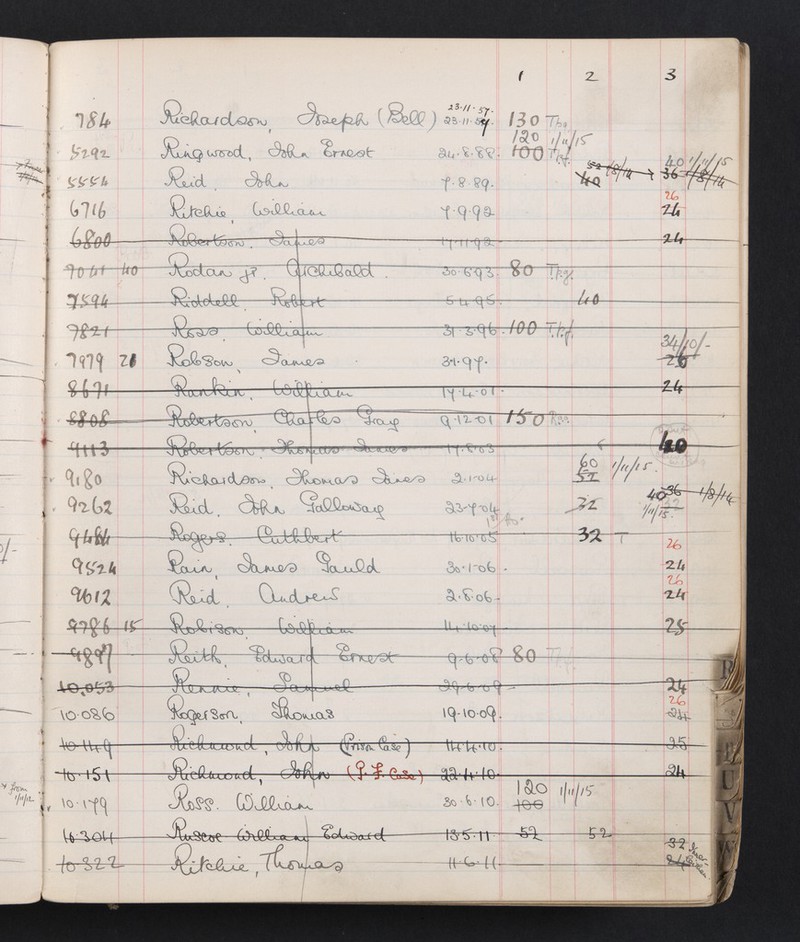 1 2 3
23.11.57.
784 Richardson, Joseph (Bell) 23.11.57 130
120 1/11/15
5292 Ringwood, John Ernest 24.8.88. 100
40 1/11/15
5554 Reid, John 7.8.89. 40 36 1/8/14
26
6716 Ritchie, William 7.9.92 24
6800 Robertson, James 17.11.92 24
7041 40 Rodan jr. Archibald. 30.6.93 80
7594 Riddell, Robert 5.4.95. 40
7821 Ross, William 31.3.96. 100
34/10/-
7979 21 Robson, James 31.97.
8671 Rankin, William 17.4.01. 24
8808 Robertson, Charles Gray 9.12.01 150
9113 Robertson, Thomas James 17.8.03 40
60 1/11/15.
9180 Richardson, Thomas Jones 2.1.04 52
40 36 1/8/14
9262 Reid, John Galloway 23.7.04 32 32 1/11/15.
9484 Rogers, Cuthbert 16.10.05 32 T
26
9524 Rain, James Gauld 30.1.06. 24
26
9612 Reid, Andrew 2.8.06. 24
9786 15 Robison, William 14.10.07 25
9897 Reith, Edward Ernest 9.6.08 80
10,053 Rennie, Samuel 29.6.09 24
26
10.086 Rogerson, Thomas 19.10.09. 24
10.149 Richmond, John (Prison Case) 14.4.10. 25
10.151 Richmond, John (P.F. Case) 22.4.10. 24
120 1/11/15
10.179 Ross. William 30.6.10. 100
10.304 Ruscoe William Edward 13.5.11 52 52
32
10.322 Ritchie, Thomas 11.6.11 24
from 1/1/12
R
U
V
W